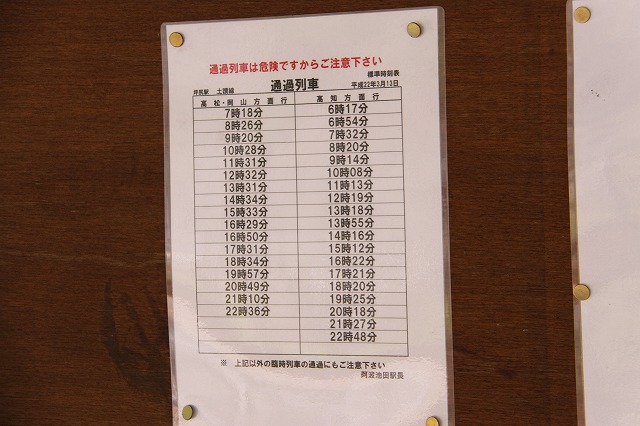 通過列車は危険ですからご注意下さい
標準時刻表
坪尻駅 土讃線 通過列車 平成22年3月13日
高松・岡山方面行 高知方面行
7時18分 6時17分
8時26分 6時54分
9時20分 7時32分
10時28分 8時20分
11時31分 9時14分
12時32分 10時08分
13時31分 11時13分
14時34分 12時19分
15時33分 13時18分
16時29分 13時55分
16時50分 14時16分
17時31分 15時12分
18時34分 16時22分
19時57分 17時21分
20時49分 18時20分
21時10分 19時25分
22時36分 20時18分
21時27分
22時48分
※ 上記以外の臨時列車の通過にもご注意下さい
阿波池田駅長